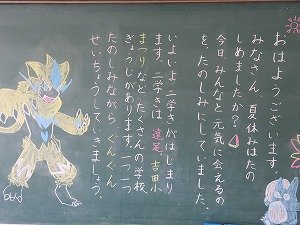 おはようございます。
みなさん、夏休みはたの
しめましたか？
今日、みんなと元気に会えるの
を、たのしみにしていました。
いよいよ二学きがはじまり
ます。二学きは、遠足、吉田小
まつりなど、たくさんの学校
ぎょうじがあります。一つ一つ
たのしみながら、ぐんぐん
せいちょうしていきましょう。